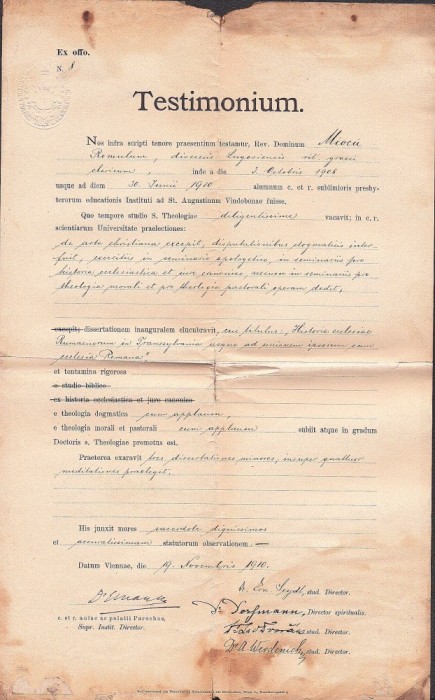 Ex offo.
N. 8
Testimonium.
Nos infra scripti tenore praesentium testamur, Rev. Dominum Miocu
Romulum, dioecesis Lugosiensis rit. graeci
clericum, inde a die 3. Octobris 1908
usque ad diem 30. Junii 1910 alumnum c. et r. sublimioris presby-
terorum educationis Instituti ad St. Augustinum Vindobonae fuisse.
Quo tempore studio S. Theologiae diligentissime vacavit; in c. r.
scientiarum Universitate praelectiones:
de arte christiana excepit, disputationibus dogmaticis inter
fuit, exercitiis in seminario apologetico, in seminariis pro
historia ecclesiastica et iure canonico, necnon in seminariis pro
theologia morali et pro theologia pastorali operam dedit,
excepit; dissertationem inauguralem elucubravit, cui titulus: „Historia ecclesiae
Rumaenorum in Transsylvania usque ad unionem ipsorum cum
ecclesia Romana",
et tentamina rigorosa
e studio biblico
ex historia ecclesiastica et jure canonico
e theologia dogmatica cum applausu,
e theologia morali et pastorali cum applausu subiit atque in gradum
Doctoris s. Theologiae promotus est.
Praeterea exaravit tres dissertationes minores, insuper quattuor
meditationes praelegit.
His junxit mores sacerdote dignissimos
et accuratissimam statutorum observationem. —
Datum Viennae, die 19. Novembris 1910.
Ern. Seydl, stud. Director.
Dr. , Director spiritualis.
c. et r. aulae ac palatii Parochus, stud. Director.
Supr. Instit. Director.
Dr A. stud. Director.